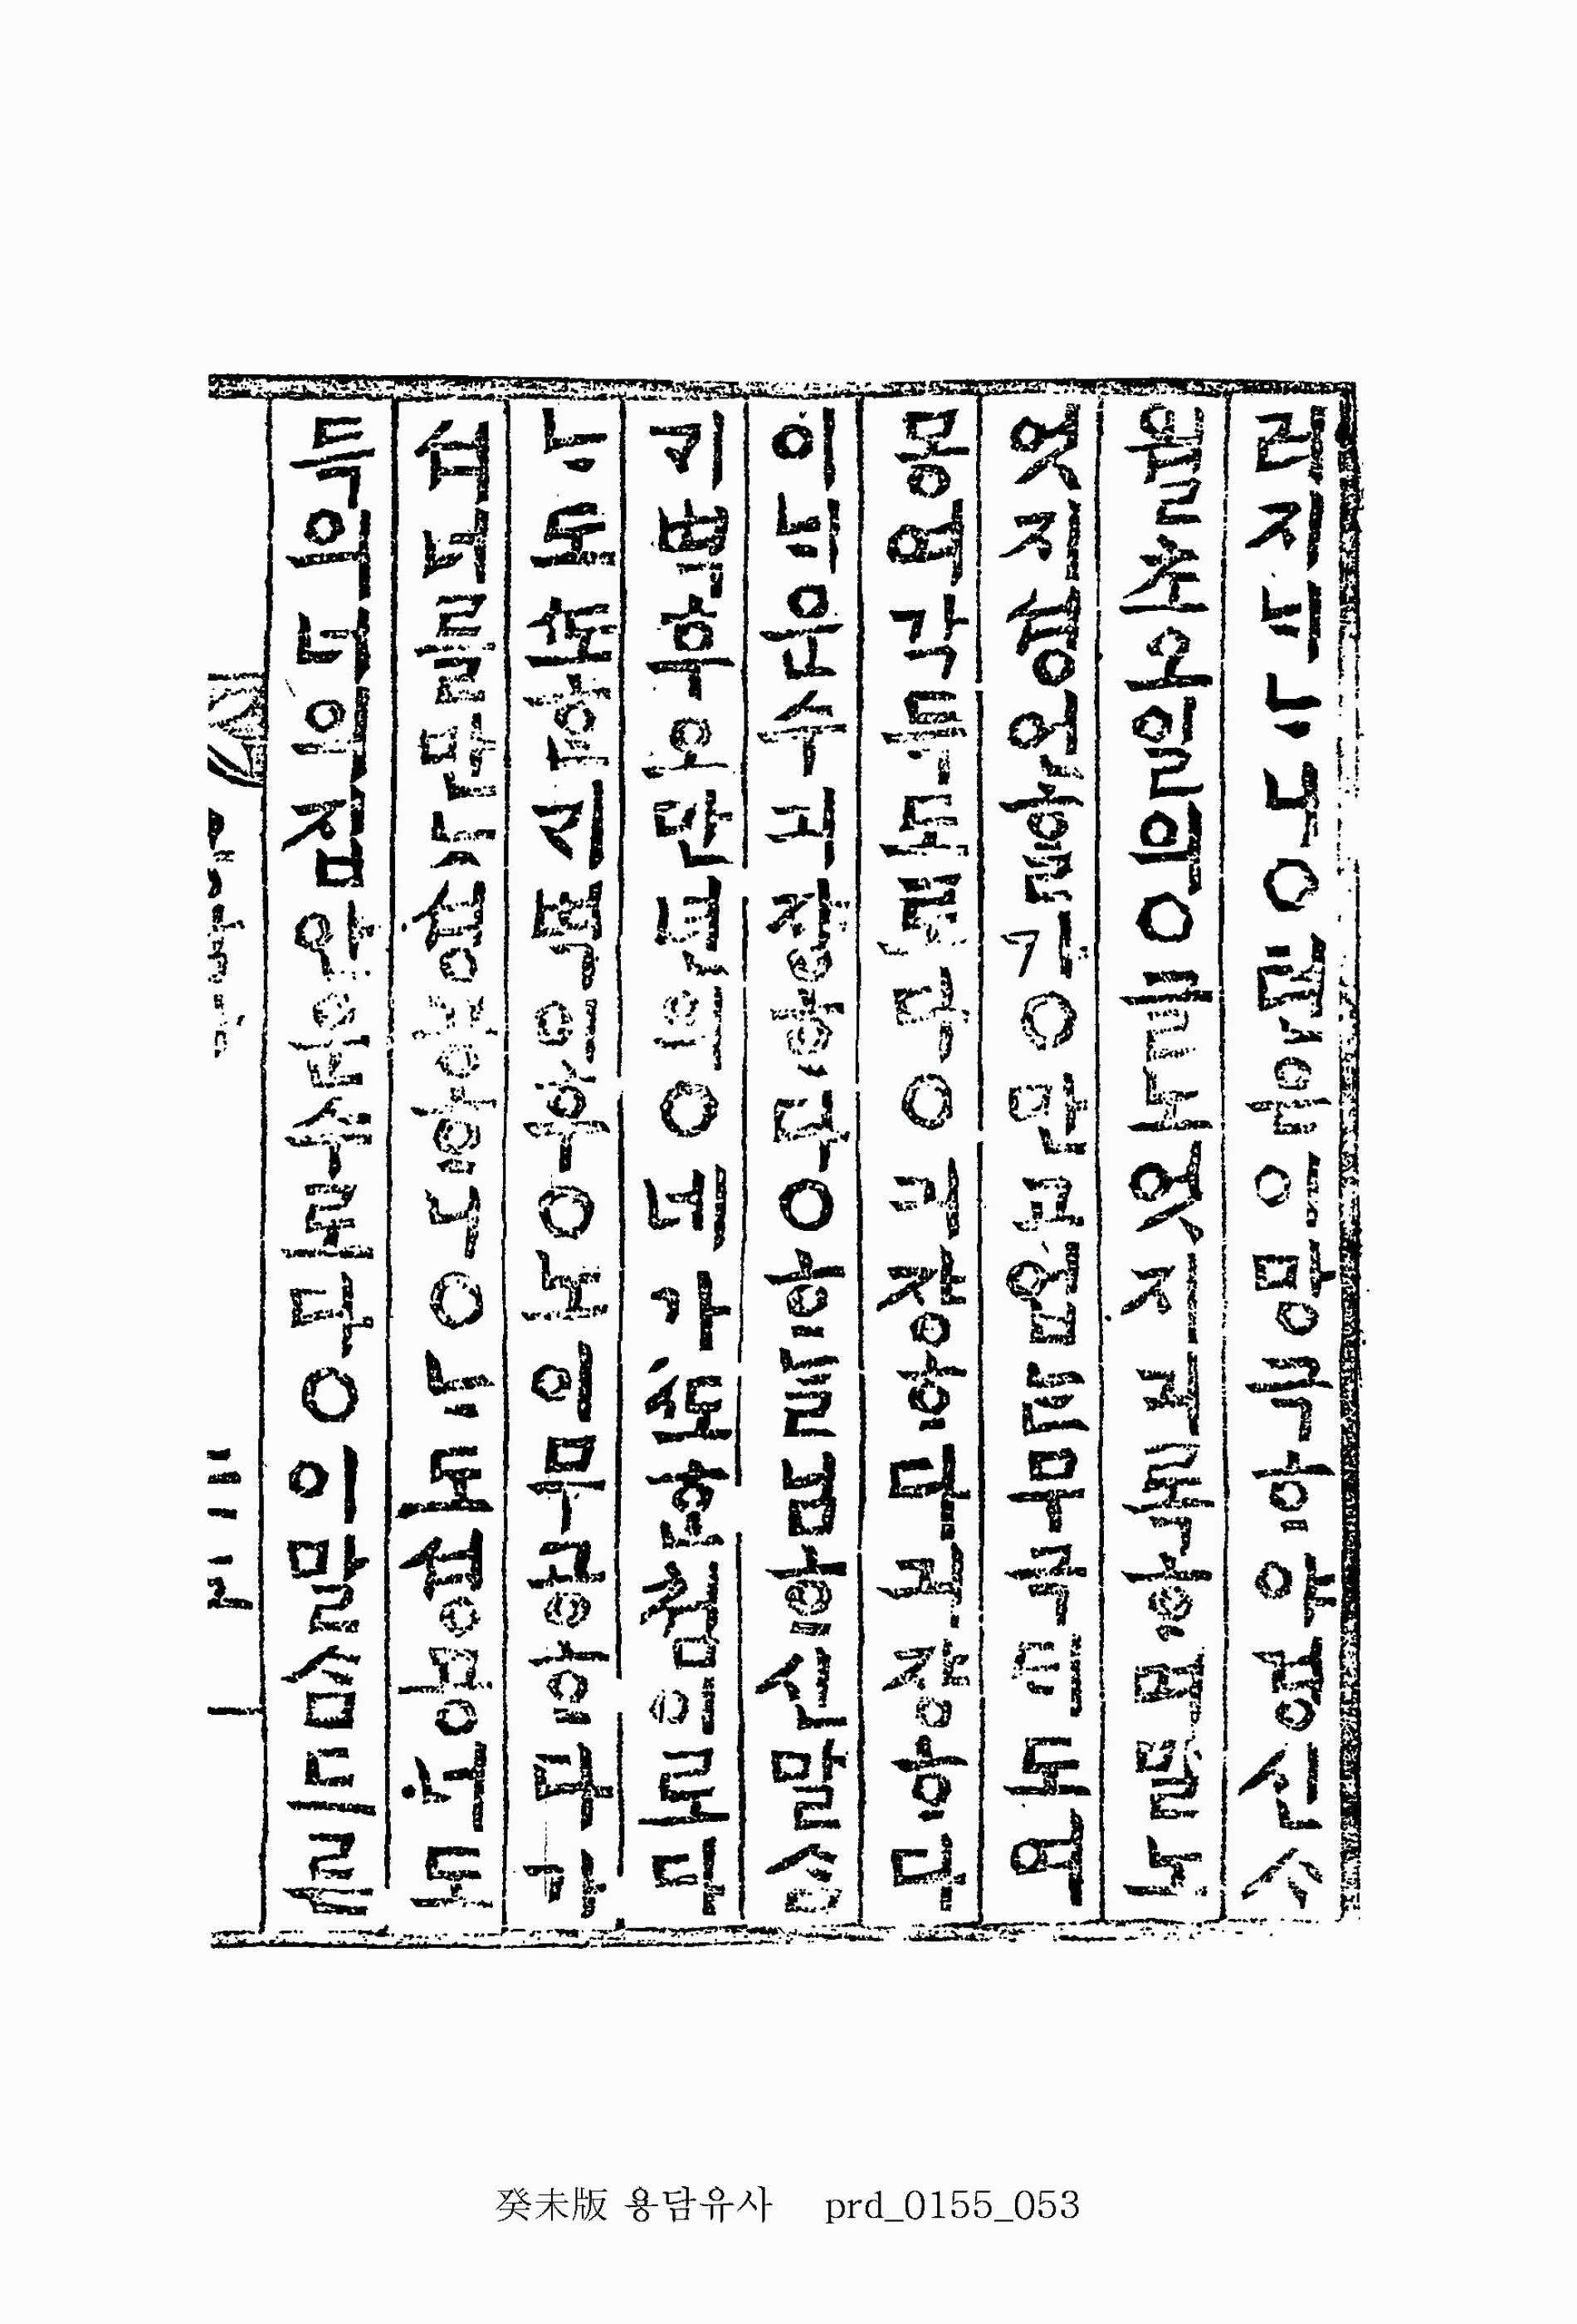 러지ᄂᆡᄂᆞ니○텬은이망극ᄒᆞ야경신ᄉᆞ
월초오일의○글노엇지긔록ᄒᆞ며말노
엇지셩언ᄒᆞᆯ가○만고업ᄂᆞᆫ무극ᄃᆡ도여
몽여각득도로다○긔장ᄒᆞ다긔장ᄒᆞ다
이ᄂᆡ운수긔장ᄒᆞ다○ᄒᆞᄂᆞᆯ님ᄒᆞ신말ᄉᆞᆷ
ᄀᆡ벽후오만년의○네가ᄯᅩᄒᆞᆫ쳠이로다
ᄂᆞ도ᄯᅩᄒᆞᆫᄀᆡ벽이후○노이무공ᄒᆞ다가
셔너를만ᄂᆞ셩공ᄒᆞ니○ᄂᆞ도셩공너도
득의너의집안운수로다○이말ᄉᆞᆷ드르
癸未版 용담유사 prd_0155_053